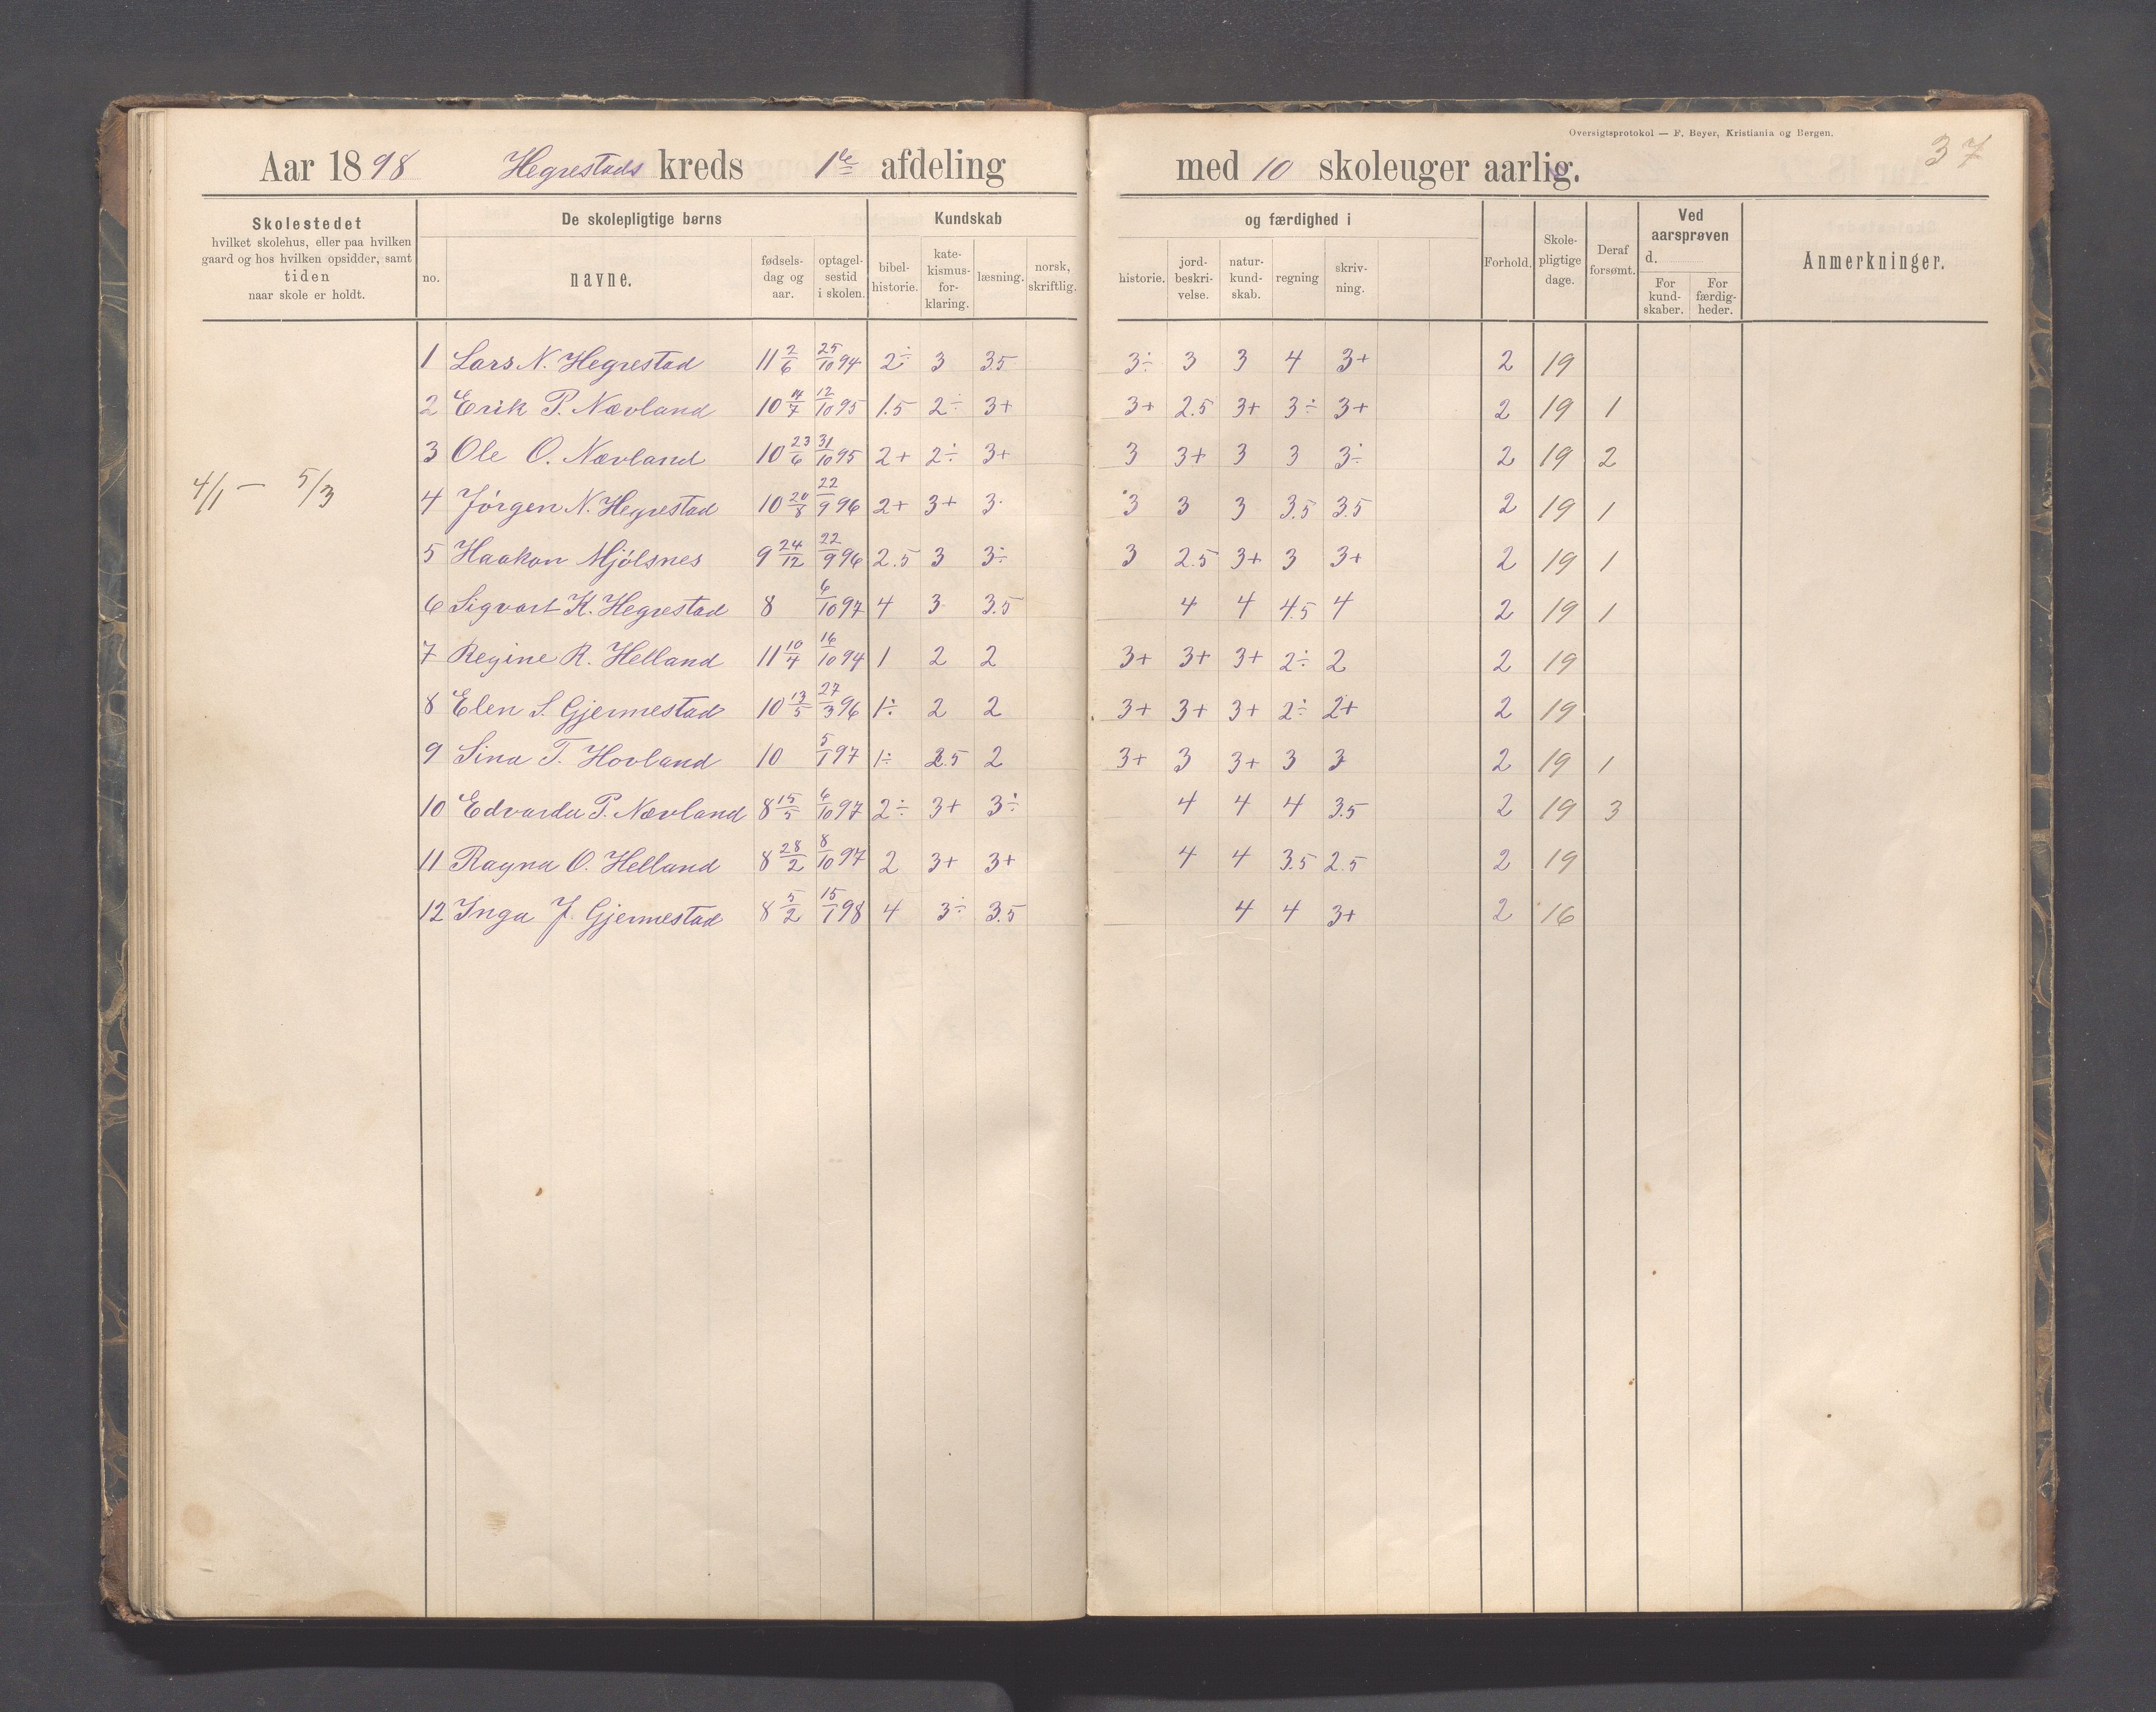 Oversigtsprotokol — F. Beyer, Kristiania og Bergen.
37
Aar 1898 Hegrestads kreds 1ste afdeling med 10 skoleuger aarlig.
Skolestedet
hvilket skolehus, eller paa hvilken
gaard og hos hvilken opsidder, samt
tiden
naar skole er holdt.
De skolepligtige børns
no.
navne.
fødsels-
dag og
aar.
optagel-
sestid
i skolen.
Kundskab
bibel-
historie.
kate-
kismus-
for-
klaring.
læsning.
norsk,
skriftlig.
og færdighed i
historie.
jord-
beskri-
velse.
natur-
kund-
skab.
regning
skriv-
ning.
Forhold.
Skole-
pligtige
dage.
Deraf
forsømt.
Ved
aarsprøven
d.
For
kund-
skaber.
For
færdig-
heder.
Anmerkninger.
4/1 — 5/3
1 Lars N. Hegrestad 11 2/6 25/10 94 2÷ 3 3.5 3÷ 3 3 4 3+ 2 19
2 Erik P. Nævland 10 14/7 12/10 95 1.5 2÷ 3+ 3+ 2.5 3+ 3÷ 3+ 2 19 1
3 Ole O. Nævland 10 23/6 31/10 95 2+ 2÷ 3+ 3 3+ 3 3 3÷ 2 19 2
4 Jörgen N. Hegrestad 10 20/8 22/9 96 2+ 3+ 3 3 3 3 3.5 3.5 2 19 1
5 Haakon Mjölsnes 9 24/12 22/9 96 2.5 3 3÷ 3 2.5 3+ 3 3+ 2 19 1
6 Sigvart K. Hegrestad 8 6/10 97 4 3 3.5 4 4 4.5 4 2 19 1
7 Regine R. Helland 11 10/4 16/10 94 1 2 2 3+ 3+ 3+ 2÷ 2 2 19
8 Elen S. Gjermestad 10 13/5 27/3 96 1÷ 2 2 3+ 3+ 3+ 2÷ 2+ 2 19
9 Sina T. Hovland 10 5/1 97 1÷ 2.5 2 3+ 3 3+ 3 3 2 19 1
10 Edvarda P. Nævland 8 15/5 6/10 97 2÷ 3+ 3÷ 4 4 4 3.5 2 19 3
11 Ragna O. Helland 8 28/2 8/10 97 2 3+ 3+ 4 4 3.5 2.5 2 19
12 Inga J. Gjermestad 8 5/2 15/1 98 4 3÷ 3.5 4 4 3+ 2 16